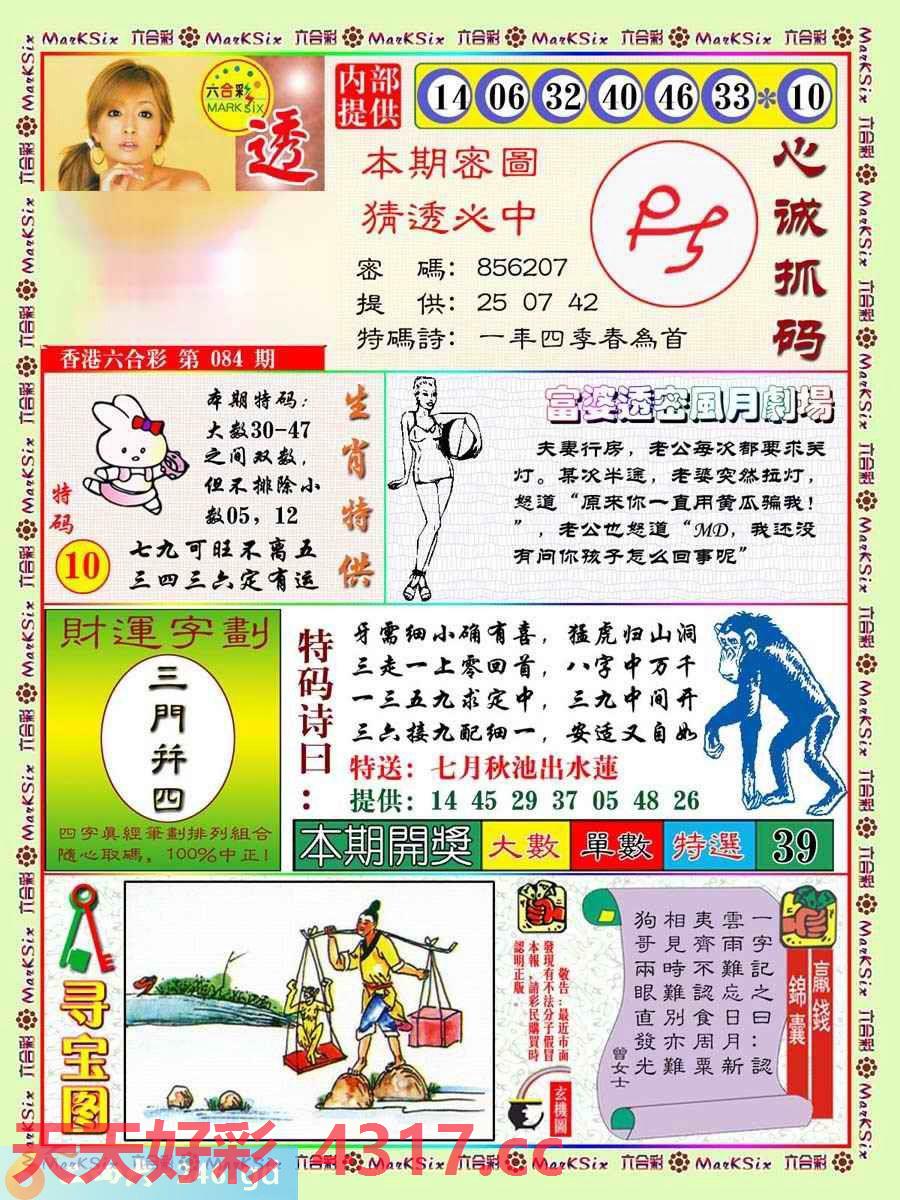 MarKSix 六合彩 MarKSix 六合彩 MarKSix 六合彩 MarKSix 六合彩 MarKSix 六合彩
六合彩
MARK SIX
透
内部
提供
14 06 32 40 46 33 * 10
本期密圖
猜透必中
密 碼: 856207
提 供: 25 07 42
特碼詩: 一年四季春為首
心诚抓码
香港六合彩 第 084 期
本期特码:
大数30-47
之间双数,
但不排除小
数05, 12
特码
10
七九可旺不离五
三四三六定有运
生肖特供
富婆透密風月劇場
夫妻行房, 老公每次都要求关
灯。某次半途, 老婆突然拉灯,
怒道“原来你一直用黄瓜骗我!
”, 老公也怒道“MD, 我还没
有问你孩子怎么回事呢”
財運字劃
三門并四
四字真經筆劃排列組合
隨心取碼, 100%中正!
特码诗曰:
牙需细小确有喜, 猛虎归山洞
三走一上零回首, 八字中万千
一三五九求定中, 三九中间开
三六接九配细一, 安适又自如
特送: 七月秋池出水蓮
提供: 14 45 29 37 05 48 26
本期開獎 大數 單數 特選 39
寻宝图
敬告:最近市面
發現有不法分子假冒
本報,請彩民購買時
認明正版。
玄機圖
一字記之曰:認
雲雨難忘日月新
夷齊不認食周粟
相見時難別亦難
狗哥兩眼直發光
曾女士
贏錢
錦囊
天天好彩 4317.cc
MarKSix 六合彩 MarKSix 六合彩 MarKSix 六合彩 MarKSix 六合彩 MarKSix